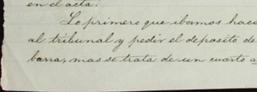 en el acta.
Lo primero que ibamos hacer
al tribunal y pedir el deposito de
barra, mas se trata de un cuarto a